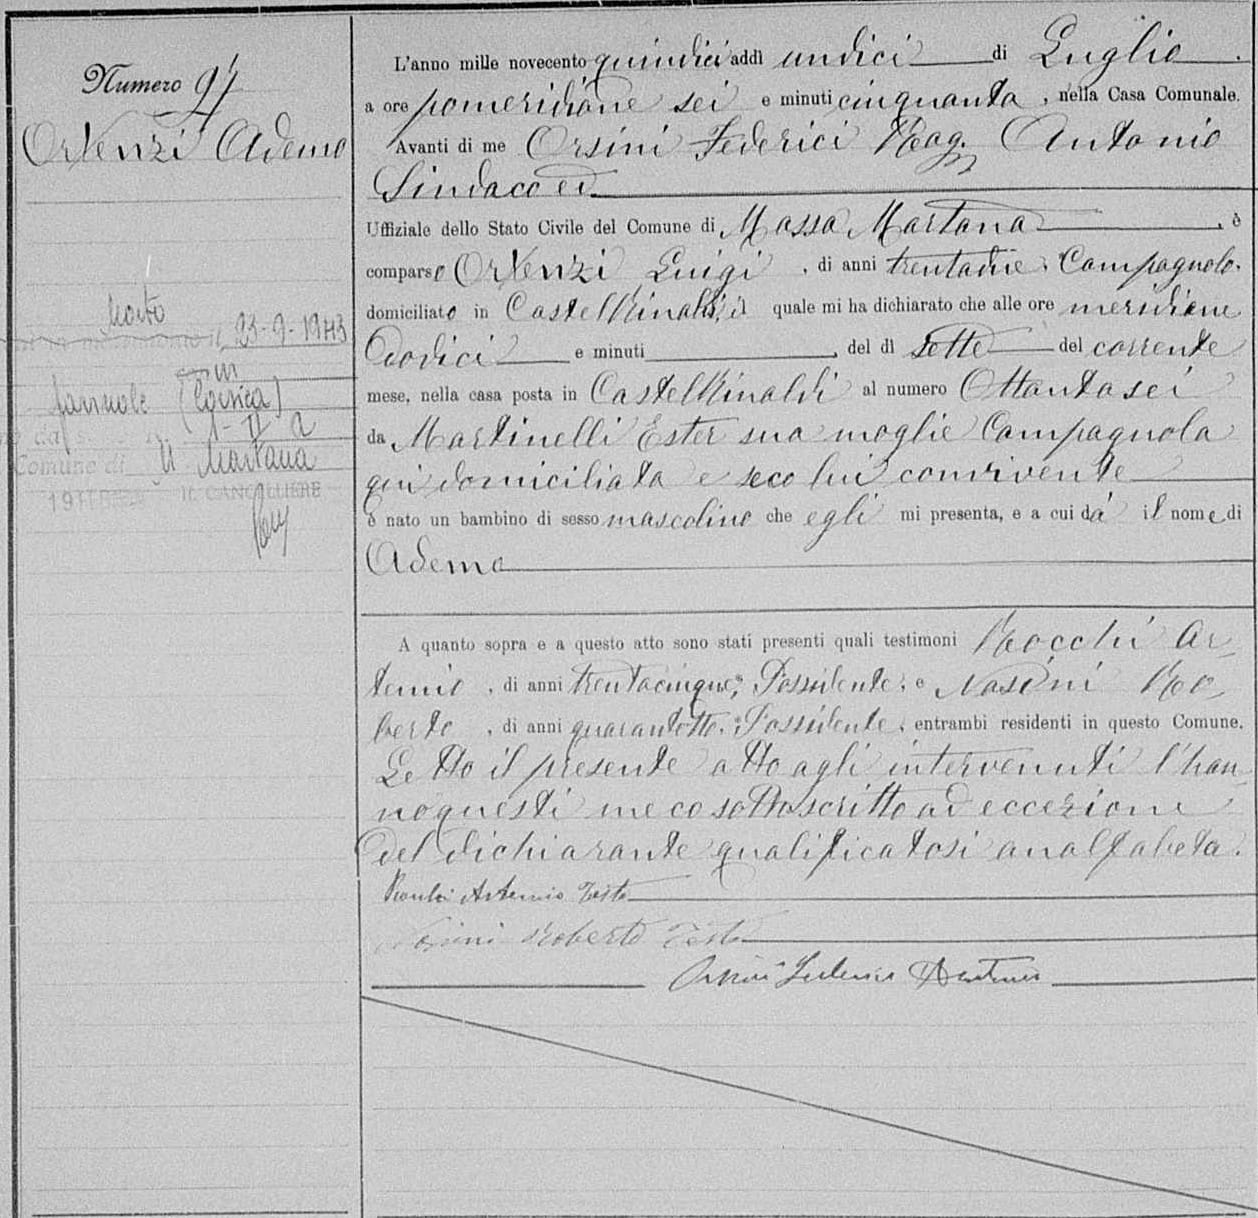 Numero 94
Ortenzi Ademo
Morto
23-9-1943
in
(Corsica)
1-II-a
Comune di M. Martana
IL CANCELLIERE
L'anno mille novecento quindici addì undici di Luglio.
a ore pomeridiane sei e minuti cinquanta, nella Casa Comunale.
Avanti di me Orsini Federici Rag. Antonio
Sindaco ed
Uffiziale dello Stato Civile del Comune di Massa Martana, è
comparso Ortenzi Luigi, di anni trentadue, Campagnolo.
domiciliato in Castel Rinaldi, il quale mi ha dichiarato che alle ore meridiane
dodici e minuti , del dì sette del corrente
mese, nella casa posta in Castel Rinaldi al numero Ottantasei
da Martinelli Ester sua moglie Campagnola
qui domiciliata e seco lui convivente
è nato un bambino di sesso mascolino che egli mi presenta, e a cui dà il nome di
Ademo
A quanto sopra e a questo atto sono stati presenti quali testimoni Rocchi Ar-
temio, di anni trentacinque, Possidente, e Nasini Ro-
berto, di anni quarantotto, Possidente, entrambi residenti in questo Comune.
Letto il presente atto agli intervenuti l'han-
no questi meco sottoscritto ad eccezione
del dichiarante qualificatosi analfabeta.
Rocchi Artemio Teste
Nasini Roberto Teste
Orsini Federici Antonio